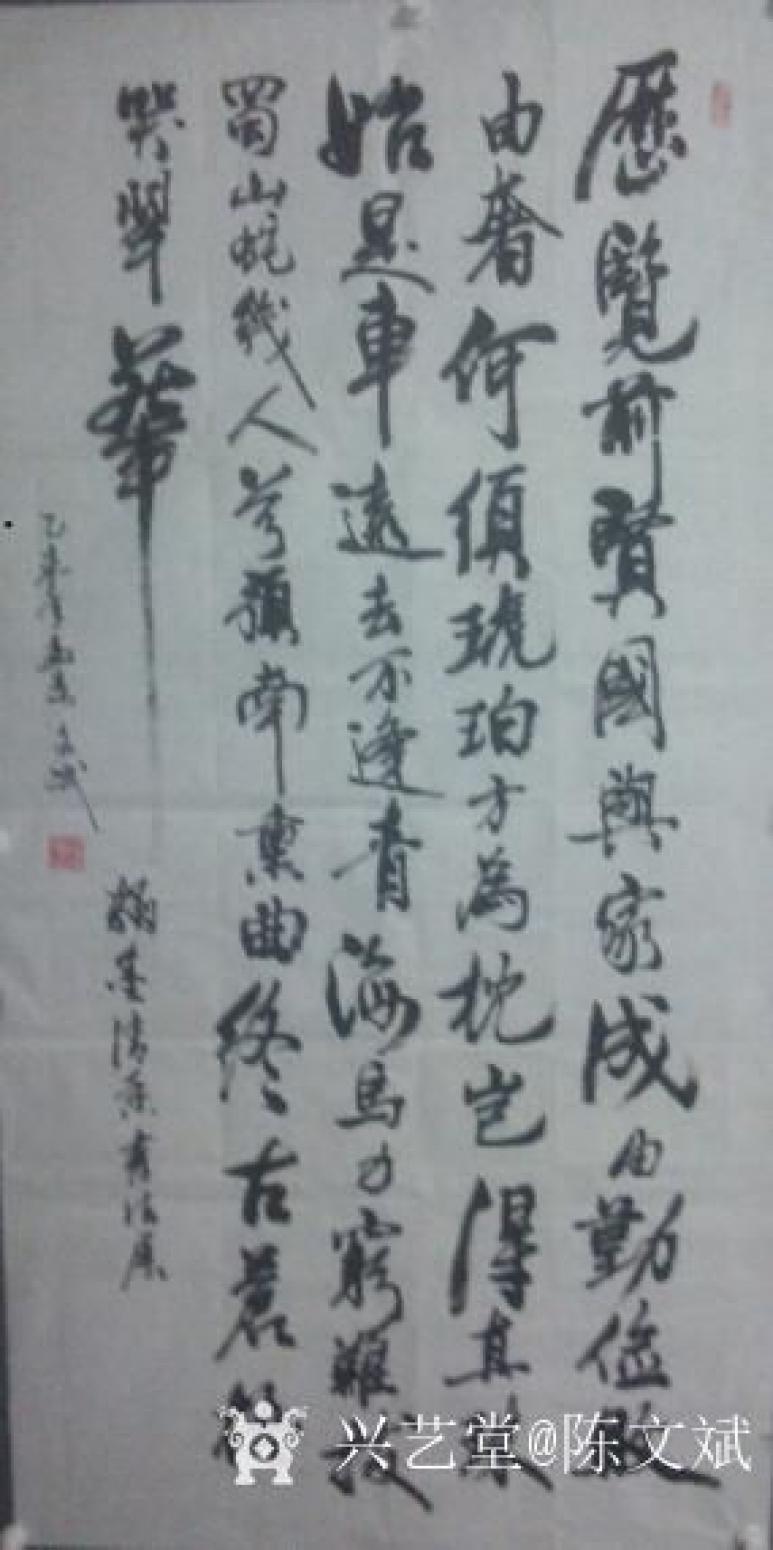 歷覽前賢國與家成由勤儉
由奢何須琥珀方為枕豈得真珠
始是車遠去不逢青海馬力窮難拔
蜀山蛇幾人曾預南熏曲終古蒼梧
哭翠華
乙未年文斌
兴艺堂@陈文斌